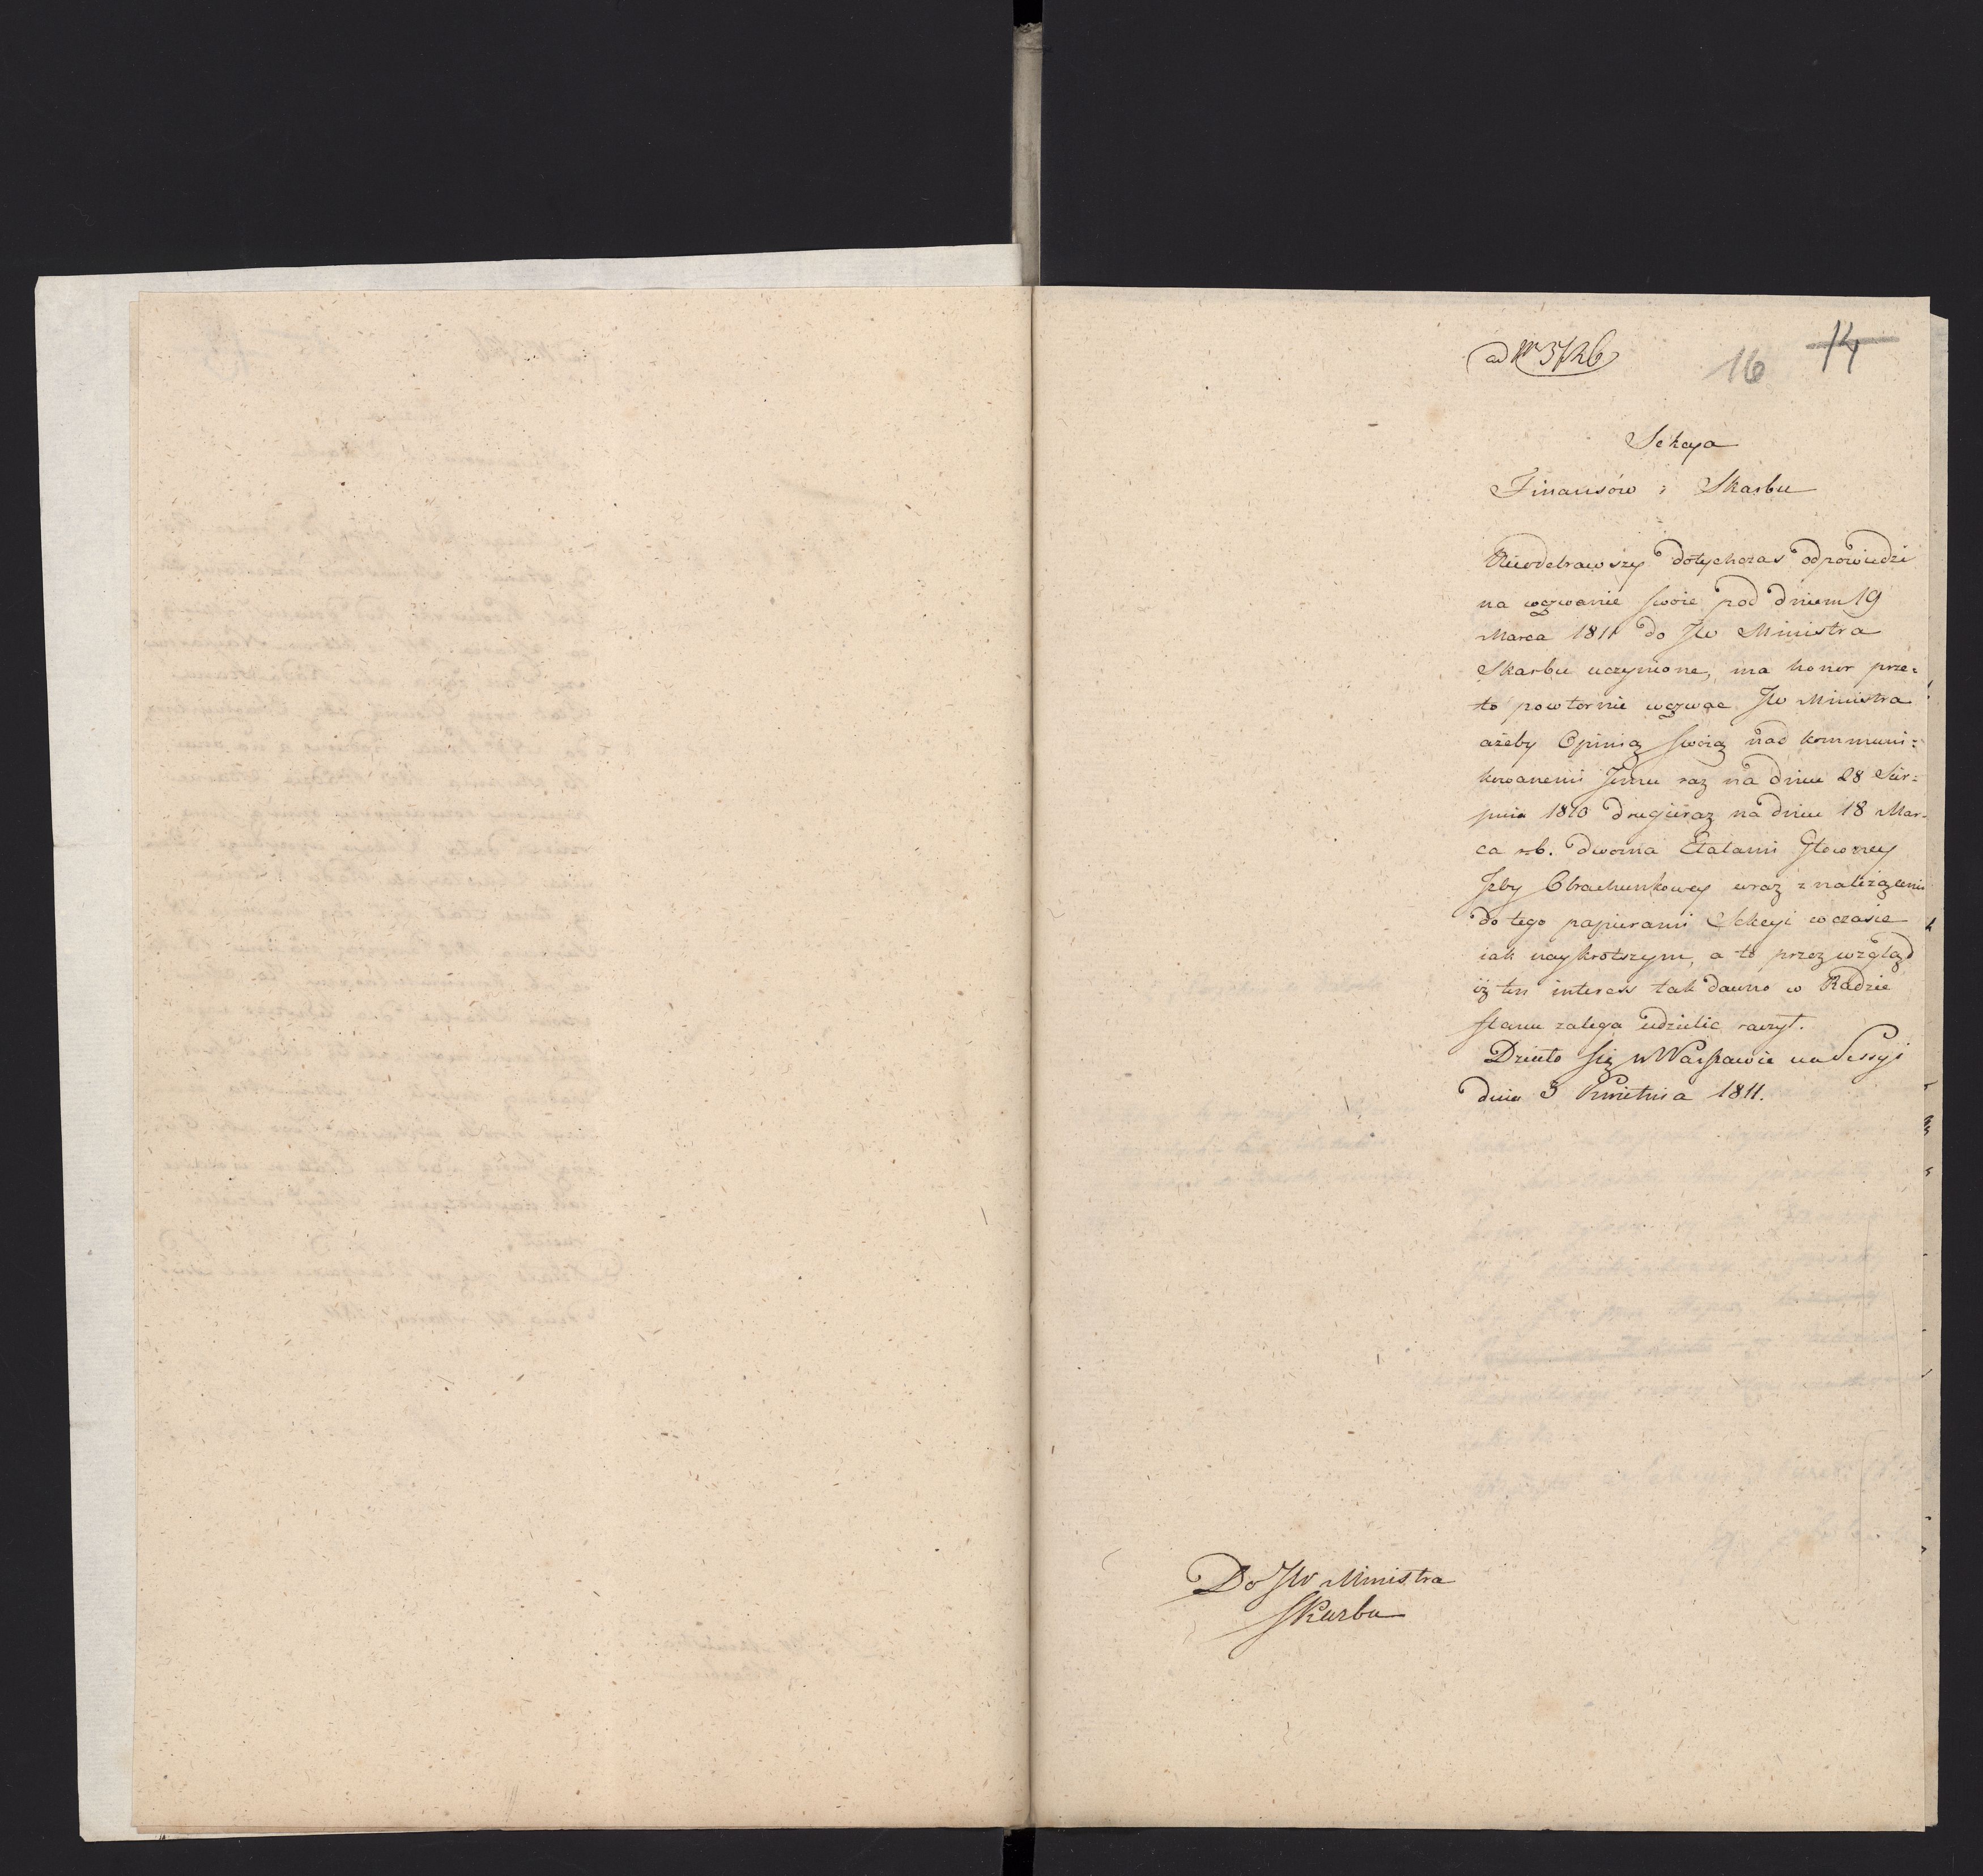 ad Nr 3726
16 14
Sekcya
Finansów i Skarbu
Nieodebrawszy dotychczas odpowiedzi
na wezwanie swoie pod dniem 19
Marca 1811 do JW Ministra
Skarbu uczynione, ma honor prze=
to powtornie wezwac JW Ministra
ażeby Opinią swoią nad kommuni=
kowanemi Jemu raz na dniu 28 Sier=
pnia 1810 drugi raz na dniu 18 Mar=
ca r.b. dwoma Etatami Głowney
Izby Obrachunkowey wraz z należącemi
do tego papierami Sekcyi w czasie
iak naykrotszym, a to przez wzgląd
iż ten interess tak dawno w Radzie
Stanu zalega udzielic raczył.
Działo się w Warszawie na Sessyi
dnia 3 Kwietnia 1811.
Do JW Ministra
Skarbu